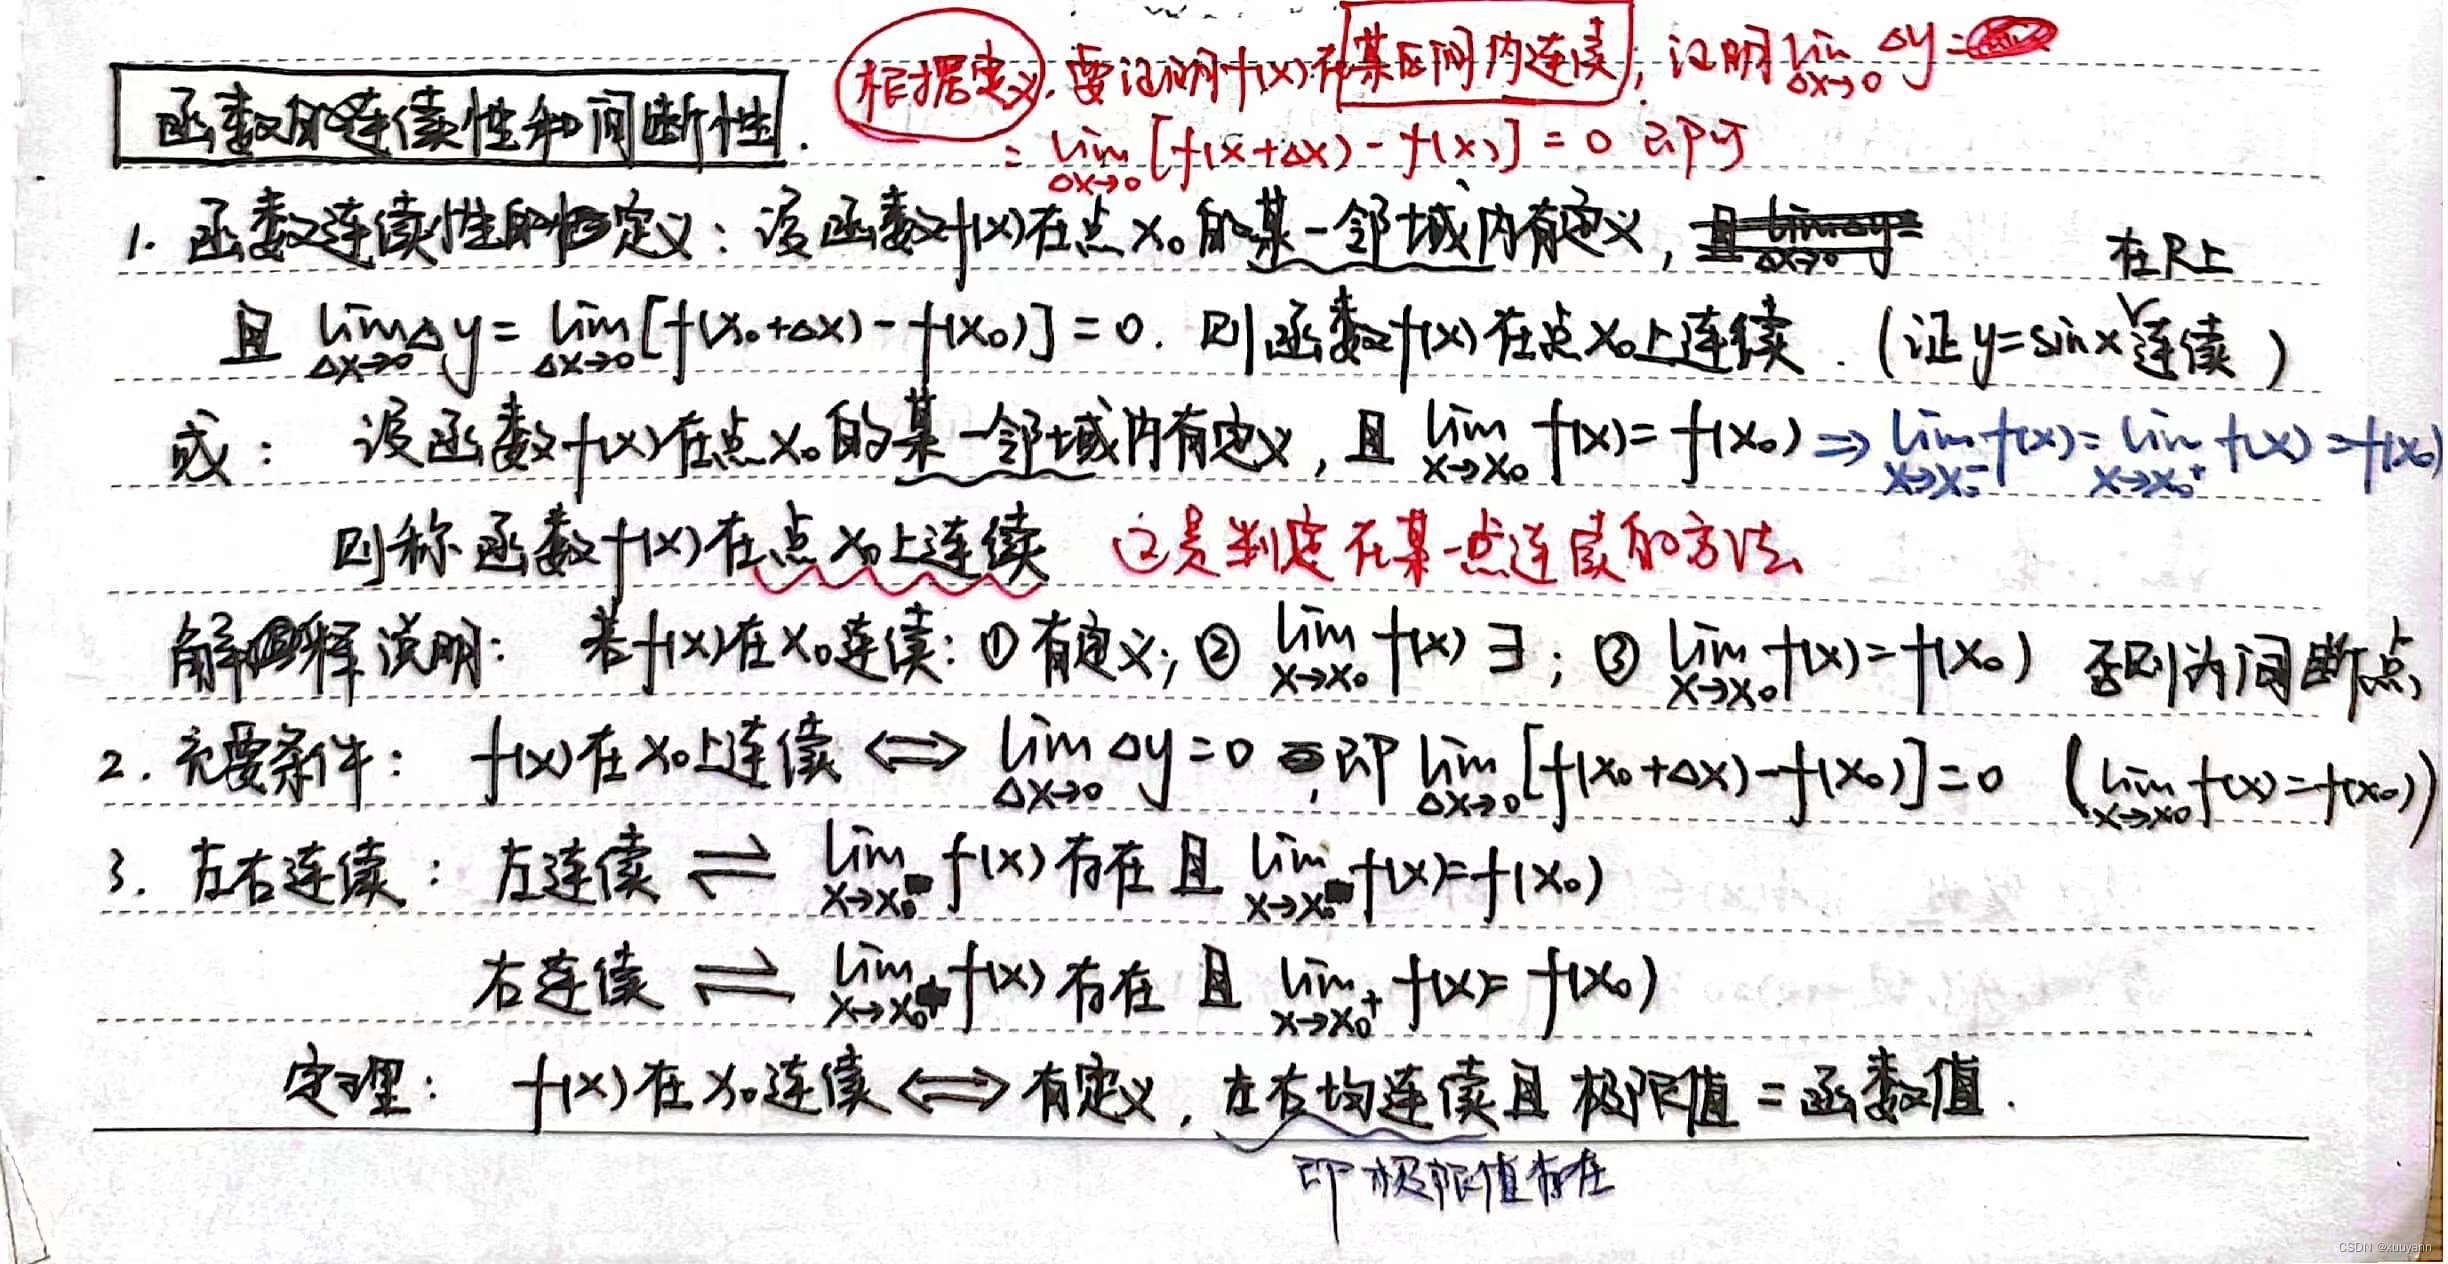 根据定义,要证明f(x)在某区间内连续,证明 lim Δx→0 Δy =
= lim Δx→0 [f(x+Δx)-f(x)] = 0 即可
函数的连续性和间断性.
1. 函数连续性的定义:设函数f(x)在点x₀的某一邻域内有定义,
在R上
且 lim Δx→0 Δy = lim Δx→0 [f(x₀+Δx)-f(x₀)] = 0. 则函数f(x)在点x₀上连续. (证y=sinx连续)
或: 设函数f(x)在点x₀的某一邻域内有定义,且 lim x→x₀ f(x)=f(x₀) ⇒ lim x→x₀⁻ f(x)= lim x→x₀⁺ f(x)=f(x₀)
则称函数f(x)在点x₀上连续 这是判定在某一点连续的方法
解释说明: 若f(x)在x₀连续:①有定义;② lim x→x₀ f(x) ∃;③ lim x→x₀ f(x)=f(x₀) 否则为间断点
2. 充要条件: f(x)在x₀上连续 ⟺ lim Δx→0 Δy=0,即 lim Δx→0 [f(x₀+Δx)-f(x₀)]=0 (lim x→x₀ f(x)=f(x₀))
3. 左右连续: 左连续 ⇌ lim x→x₀⁻ f(x)存在且 lim x→x₀⁻ f(x)=f(x₀)
右连续 ⇌ lim x→x₀⁺ f(x)存在 且 lim x→x₀⁺ f(x)=f(x₀)
定理: f(x)在x₀连续 ⟺ 有定义,左右均连续且极限值=函数值.
即极限值存在
CSDN @xuuyann